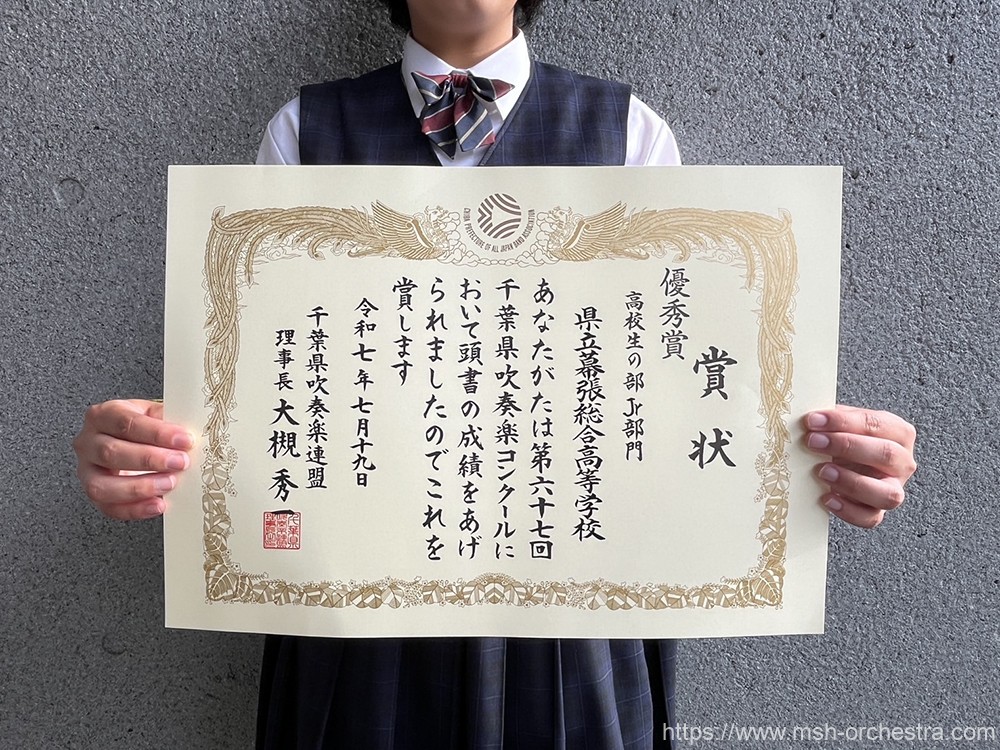 CHIBA PREFECTURE OF ALL JAPAN BAND ASSOCIATION
賞状
優秀賞
高校生の部 Jr部門
県立幕張総合高等学校
あなたがたは第六十七回
千葉県吹奏楽コンクールに
おいて頭書の成績をあげ
られましたのでこれを
賞します
令和七年七月十九日
千葉県吹奏楽連盟
理事長 大槻秀一
https://www.msh-orchestra.com